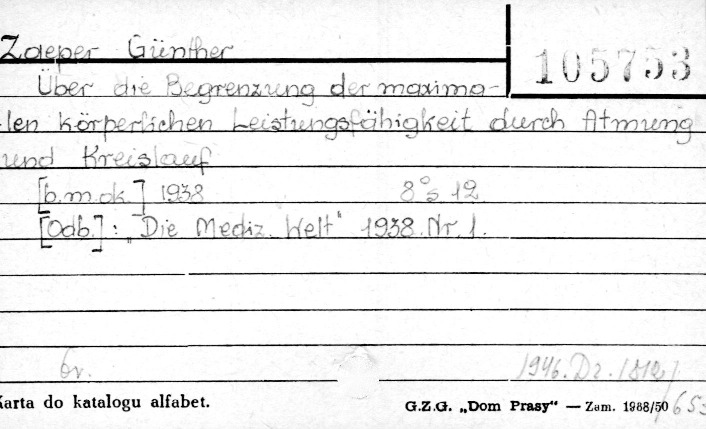 Zaeper Günther
105753
Über die Begrenzung der maxima-
len körperlichen Leistungsfähigkeit durch Atmung
und Kreislauf
[b.m.ok.] 1938 8° s 12
[Odb.]: "Die Mediz. Welt" 1938. Nr. 1.
br. 1946. Dz.
Karta do katalogu alfabet.
G.Z.G. „Dom Prasy“ — Zam. 1988/50 653